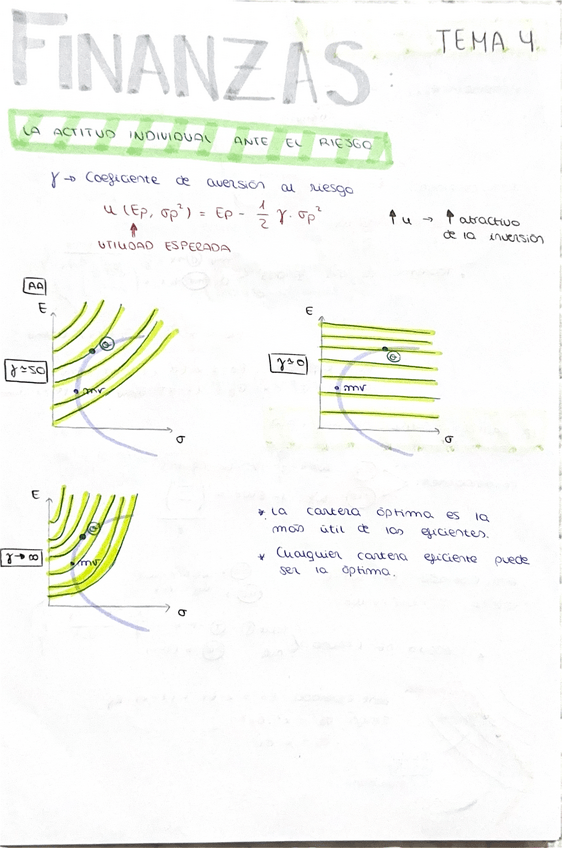 FINANZAS
TEMA 4
LA ACTITUD INDIVIDUAL ANTE EL RIESGO
γ → Coeficiente de aversión al riesgo
u (Ep, σp²) = Ep - 1/2 γ · σp²
↑ u → ↑ atractivo
de la inversión
UTILIDAD ESPERADA
AA
E
γ ≃ 50
mv
σ
E
γ ≃ 0
mv
σ
E
γ → ∞
mv
σ
* La cartera óptima es la
más útil de las eficientes.
* Cualquier cartera eficiente puede
ser la óptima.